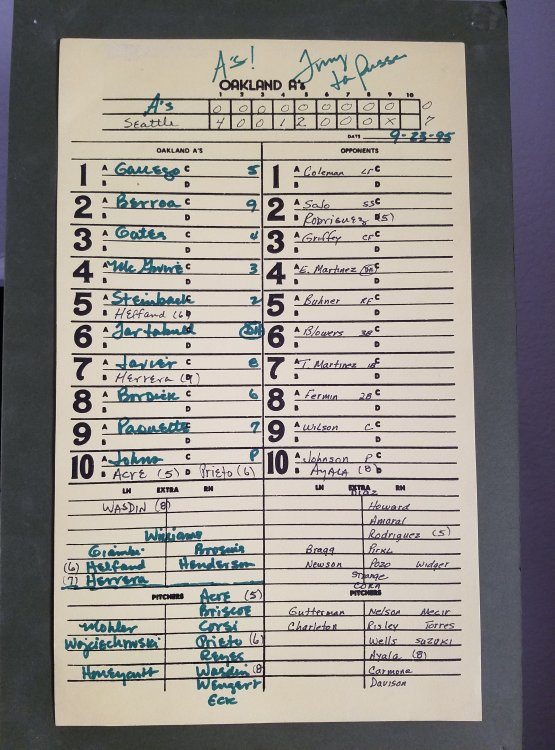 A's! Tony La Russa
OAKLAND A's
1 2 3 4 5 6 7 8 9 10
A's 0 0 0 0 0 0 0 0 0 0
Seattle 4 0 0 1 2 0 0 0 X 7
DATE 9-23-95
OAKLAND A'S OPPONENTS
1 A Gallego C 5
B D
1 A Coleman LF C
B D
2 A Berroa C 9
B D
2 A Sojo SS C
B Rodriguez D (5)
3 A Gates C 4
B D
3 A Griffey CF C
B D
4 A McGwire C 3
B D
4 A E. Martinez DH C
B D
5 A Steinbach C 2
B Helfand (6) D
5 A Buhner RF C
B D
6 A Tartabull C DH
B D
6 A Blowers 3B C
B D
7 A Javier C 8
B Herrera (7) D
7 A T. Martinez 1B C
B D
8 A Bordick C 6
B D
8 A Fermin 2B C
B D
9 A Paquette C 7
B D
9 A Wilson C C
B D
10 A Johns C P
B Acre (5) D Prieto (6)
10 A Johnson P C
B Ayala (8) D
LH EXTRA RH
Wasdin (8)
Williams
Giambi Brosius
(6) Helfand Henderson
(7) Herrera
LH EXTRA RH
Diaz
Howard
Amaral
Rodriguez (5)
Bragg Pirkl
Newson Pozo Widger
Strange
Cora
PITCHERS
Acre (5)
Briscoe
Mohler Corsi
Wojciechowski Prieto (6)
Reyes
Honeycutt Wasdin (8)
Wengert
Eck
PITCHERS
Gutterman Nelson Mecir
Charleton Risley Torres
Wells Suzuki
Ayala (8)
Carmona
Davison